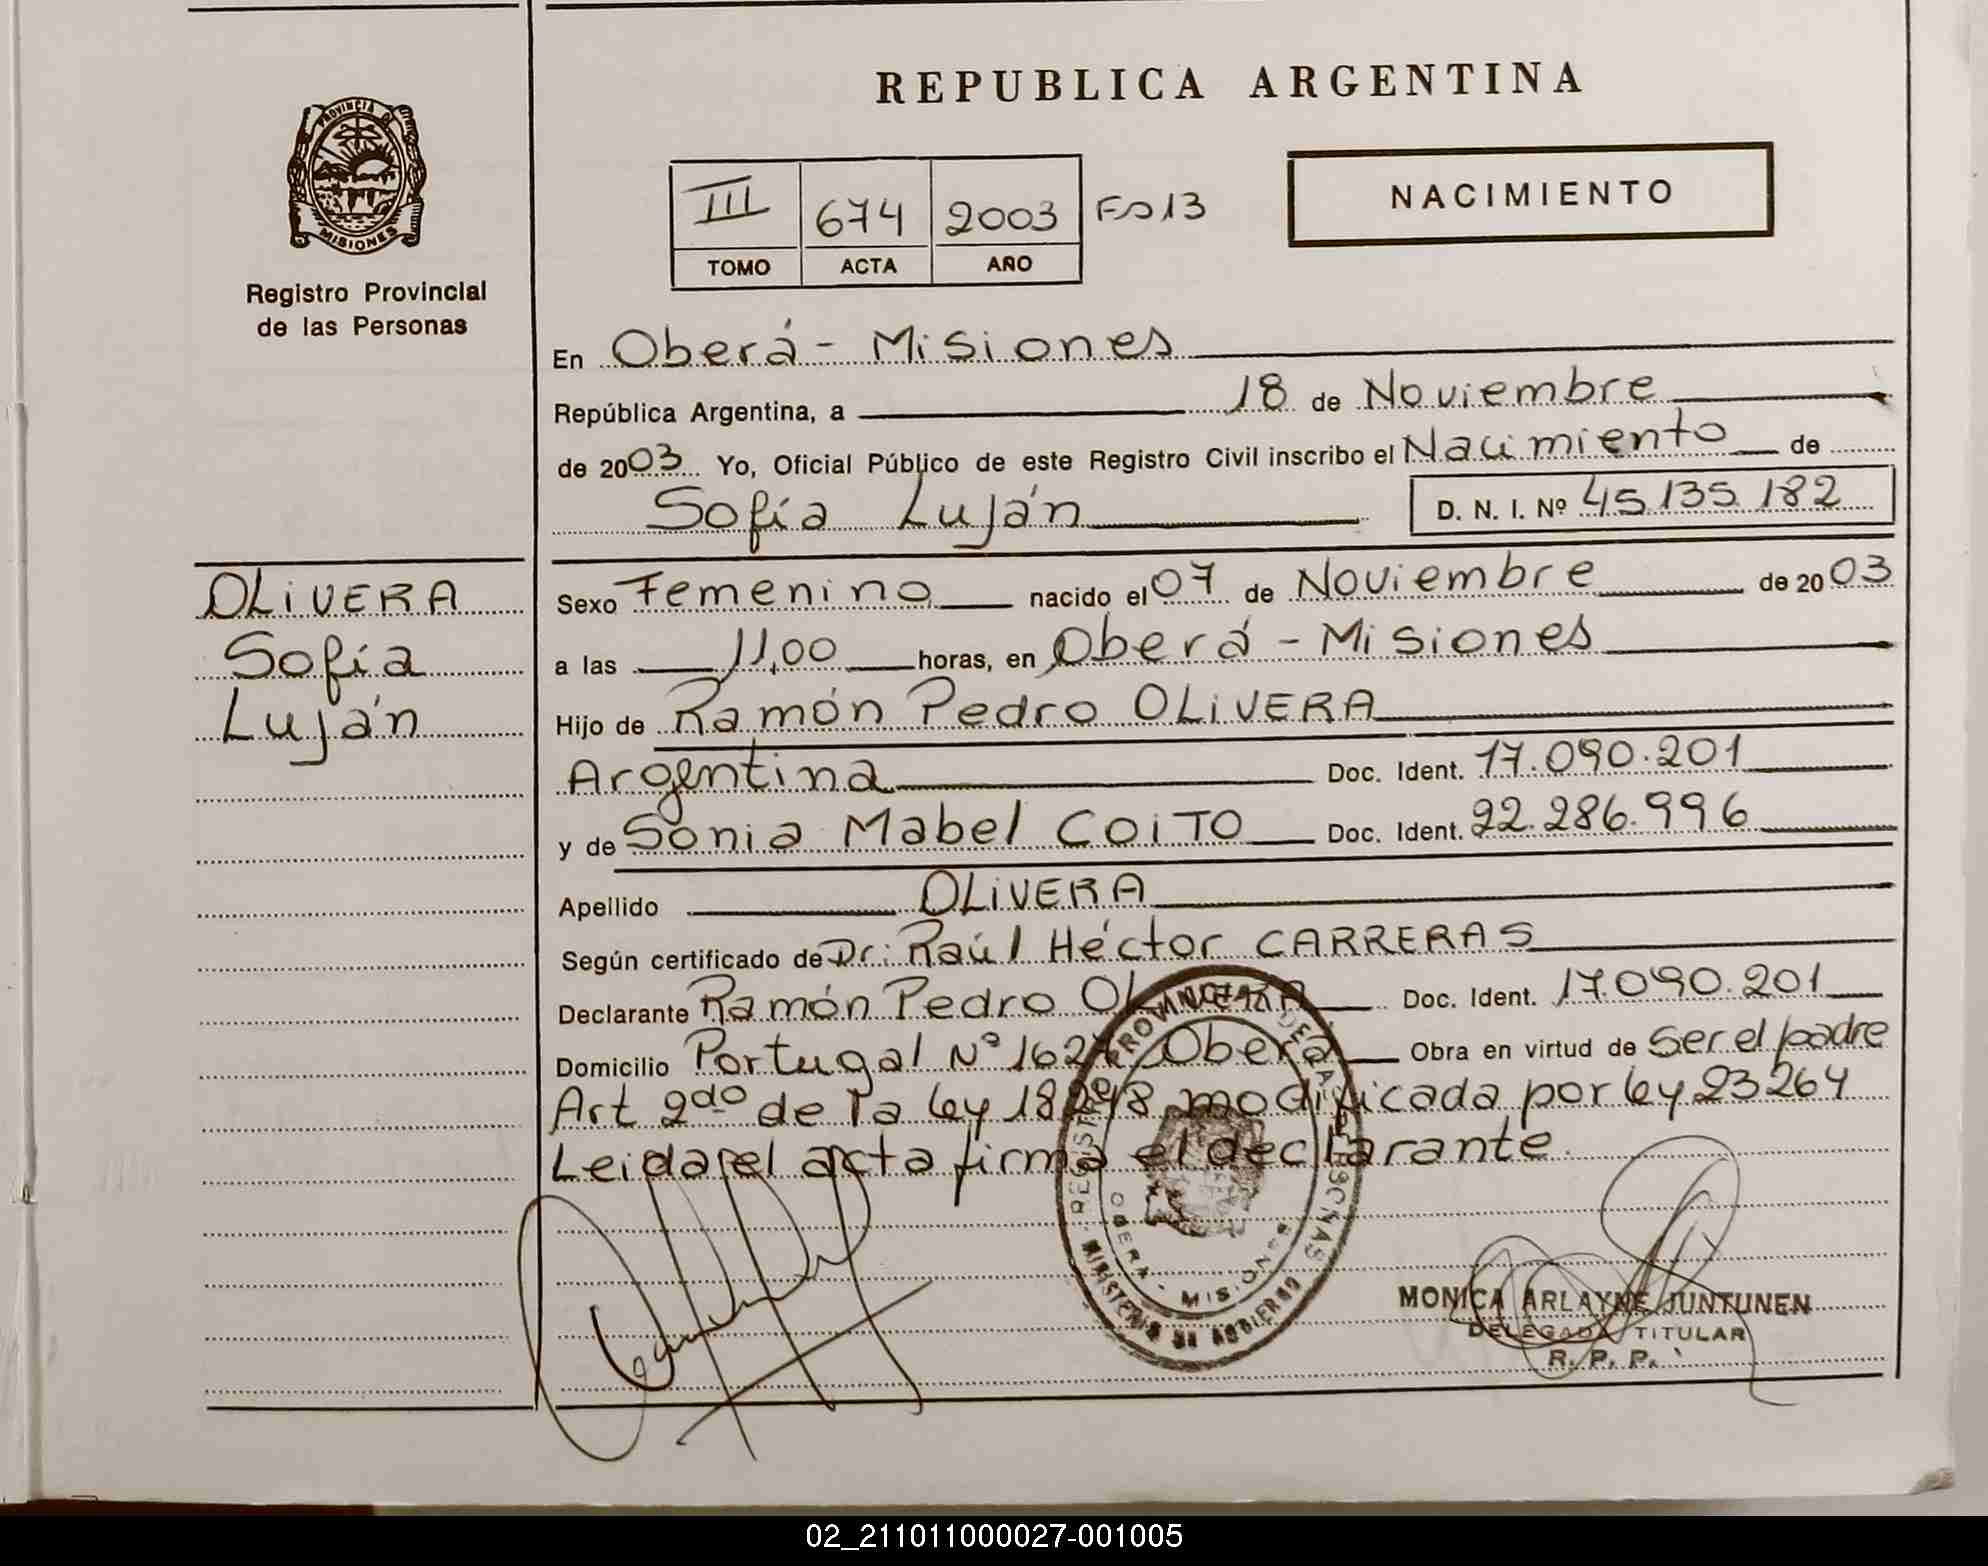 REPUBLICA ARGENTINA
PROVINCIA DE
MISIONES
Registro Provincial
de las Personas
III 674 2003 Fº 13
TOMO ACTA AÑO
NACIMIENTO
En Oberá - Misiones
República Argentina, a 18 de Noviembre
de 2003 Yo, Oficial Público de este Registro Civil inscribo el Nacimiento de
Sofía Luján D. N. I. Nº 45.135.182
OLIVERA
Sofía
Luján
Sexo Femenino nacido el 07 de Noviembre de 2003
a las 11,00 horas, en Oberá - Misiones
Hijo de Ramón Pedro OLIVERA
Argentina Doc. Ident. 17.090.201
y de Sonia Mabel COITO Doc. Ident. 22.286.996
Apellido OLIVERA
Según certificado de Dr: Raúl Héctor CARRERAS
Declarante Ramón Pedro OLIVERA Doc. Ident. 17.090.201
Domicilio Portugal Nº 1627 Oberá Obra en virtud de Ser el padre
Art 2do de la ley 18248 modificada por ley 23264
Leida el acta firma el declarante
PROVINCIAL DE LAS PERSONAS
OBERA - MISIONES
MINISTERIO DE GOBIERNO
MONICA ARLAYNE JUNTUNEN
DELEGADA TITULAR
R. P. P.
02_211011000027-001005